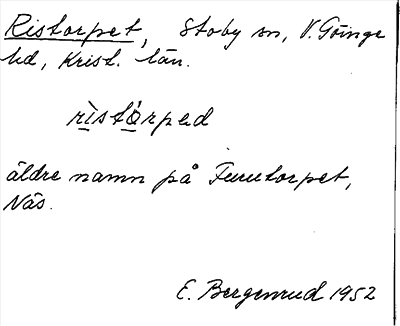 Ristorpet, Stoby sn, V. Göinge
hd, Krist. län.
rìstórped
äldre namn på Furutorpet,
Näs.
E. Bergenrud 1952